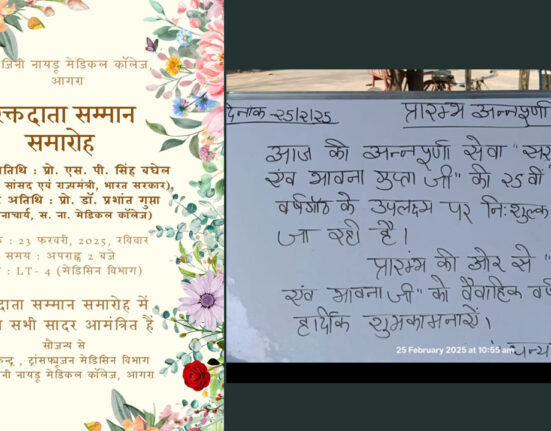 जिनी नायडू मेडिकल कॉलेज,
आगरा
क्तदाता सम्मान
समारोह
तिथि : प्रो. एस. पी. सिंह बघेल
सांसद एवं राज्यमंत्री, भारत सरकार)
अतिथि : प्रो. डॉ. प्रशांत गुप्ता
नाचार्य, स. ना. मेडिकल कॉलेज)
: 23 फरवरी, 2025, रविवार
समय : अपराह्न 2 बजे
: LT- 4 (मेडिसिन विभाग)
दाता सम्मान समारोह में
सभी सादर आमंत्रित हैं
सौजन्य से
केन्द्र , ट्रांसफ्यूजन मेडिसिन विभाग
जिनी नायडू मेडिकल कॉलेज, आगरा
दिनांक-25/2/25 प्रारम्भ अन्नपूर्णा
आज की अन्नपूर्णा सेवा "सर
एंव भावना गुप्ता जी" की 25वीं
वर्षगांठ के उपलक्ष्य पर निःशुल्क
जा रही है।
प्रारंभ की ओर से "
एंव भावना जी" को वैवाहिक वर्ष
हार्दिक शुभकामनायें।
धन्य
25 February 2025 at 10:55 am